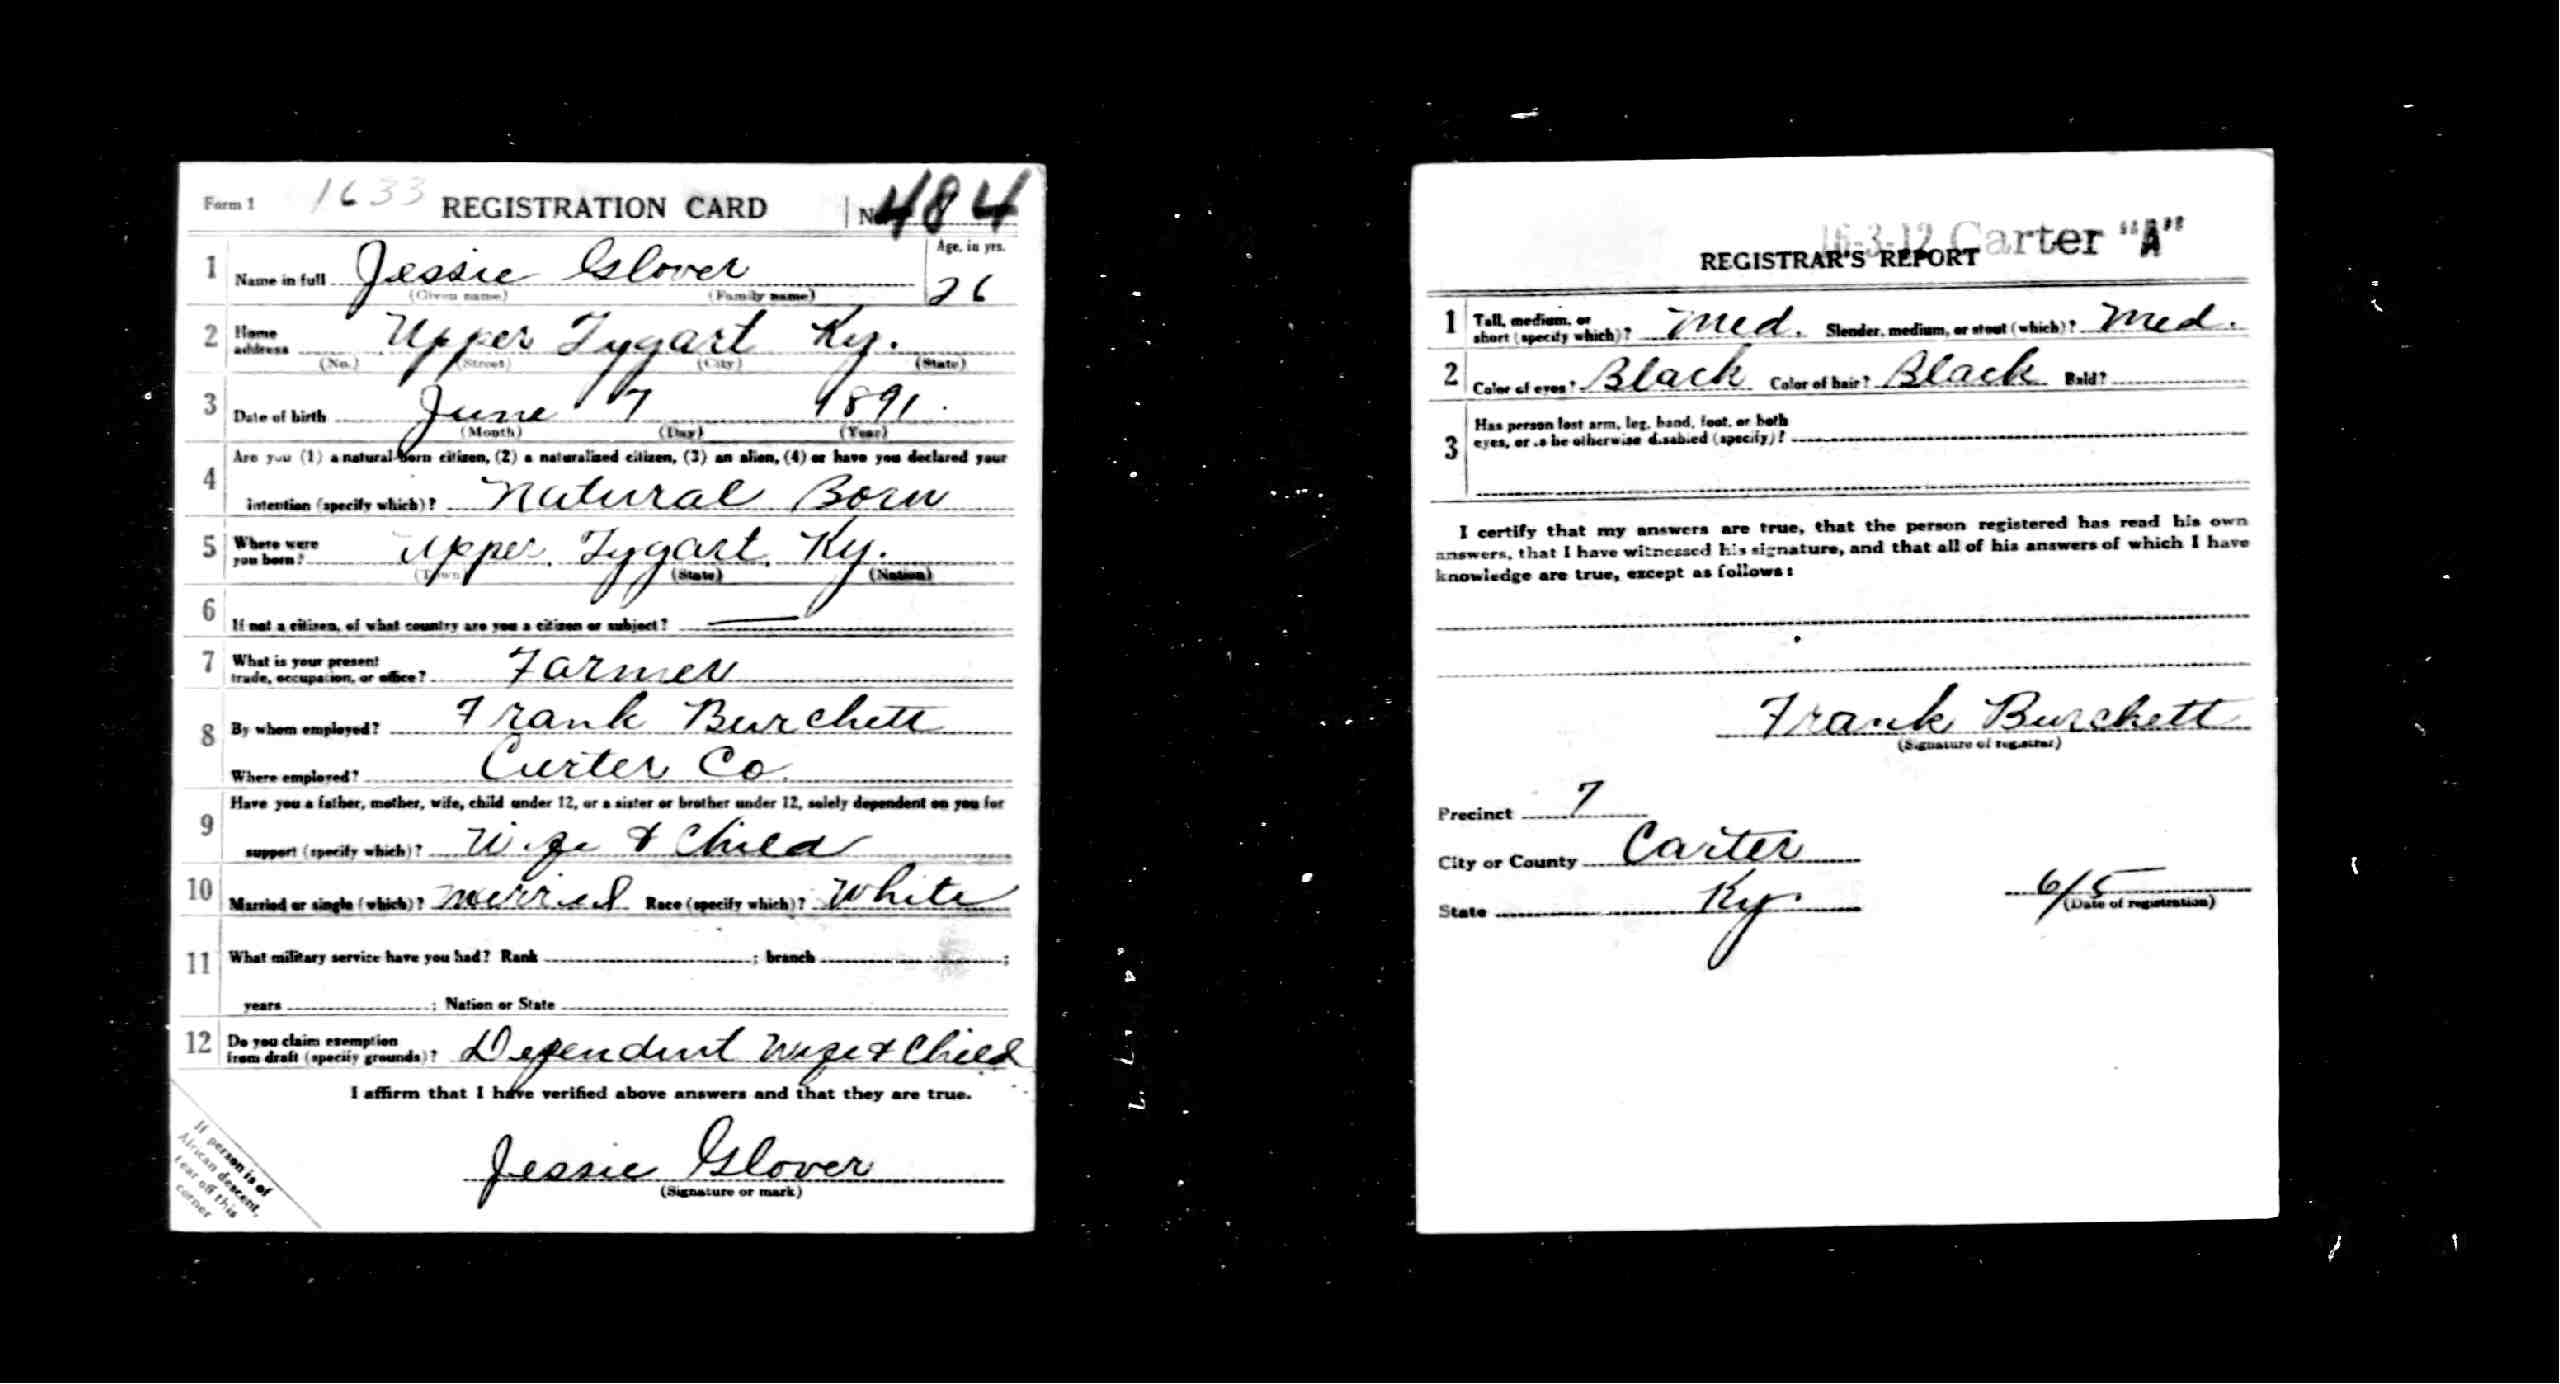 Form 1 1633 REGISTRATION CARD No. 484
1 Name in full Jessie Glover Age, in yrs. 26
(Given name) (Family name)
2 Home address Upper Tygart Ky.
(No.) (Street) (City) (State)
3 Date of birth June 7 1891
(Month) (Day) (Year)
4 Are you (1) a natural-born citizen, (2) a naturalized citizen, (3) an alien, (4) or have you declared your
intention (specify which)? Natural Born
5 Where were you born? Upper Tygart, Ky.
(Town) (State) (Nation)
6 If not a citizen, of what country are you a citizen or subject? —
7 What is your present trade, occupation, or office? Farmer
8 By whom employed? Frank Burchett
Where employed? Carter Co.
9 Have you a father, mother, wife, child under 12, or a sister or brother under 12, solely dependent on you for
support (specify which)? Wife & Child
10 Married or single (which)? Married Race (specify which)? White
11 What military service have you had? Rank ; branch ;
years ; Nation or State
12 Do you claim exemption from draft (specify grounds)? Dependent Wife & Child
I affirm that I have verified above answers and that they are true.
Jessie Glover
(Signature or mark)
If person is of
African descent,
tear off this
corner
16-3-12 Carter "A"
REGISTRAR'S REPORT
1 Tall, medium, or short (specify which)? Med. Slender, medium, or stout (which)? Med.
2 Color of eyes? Black Color of hair? Black Bald?
3 Has person lost arm, leg, hand, foot, or both
eyes, or is he otherwise disabled (specify)?
I certify that my answers are true, that the person registered has read his own
answers, that I have witnessed his signature, and that all of his answers of which I have
knowledge are true, except as follows:
Frank Burchett
(Signature of registrar)
Precinct 7
City or County Carter
State Ky. 6/5
(Date of registration)